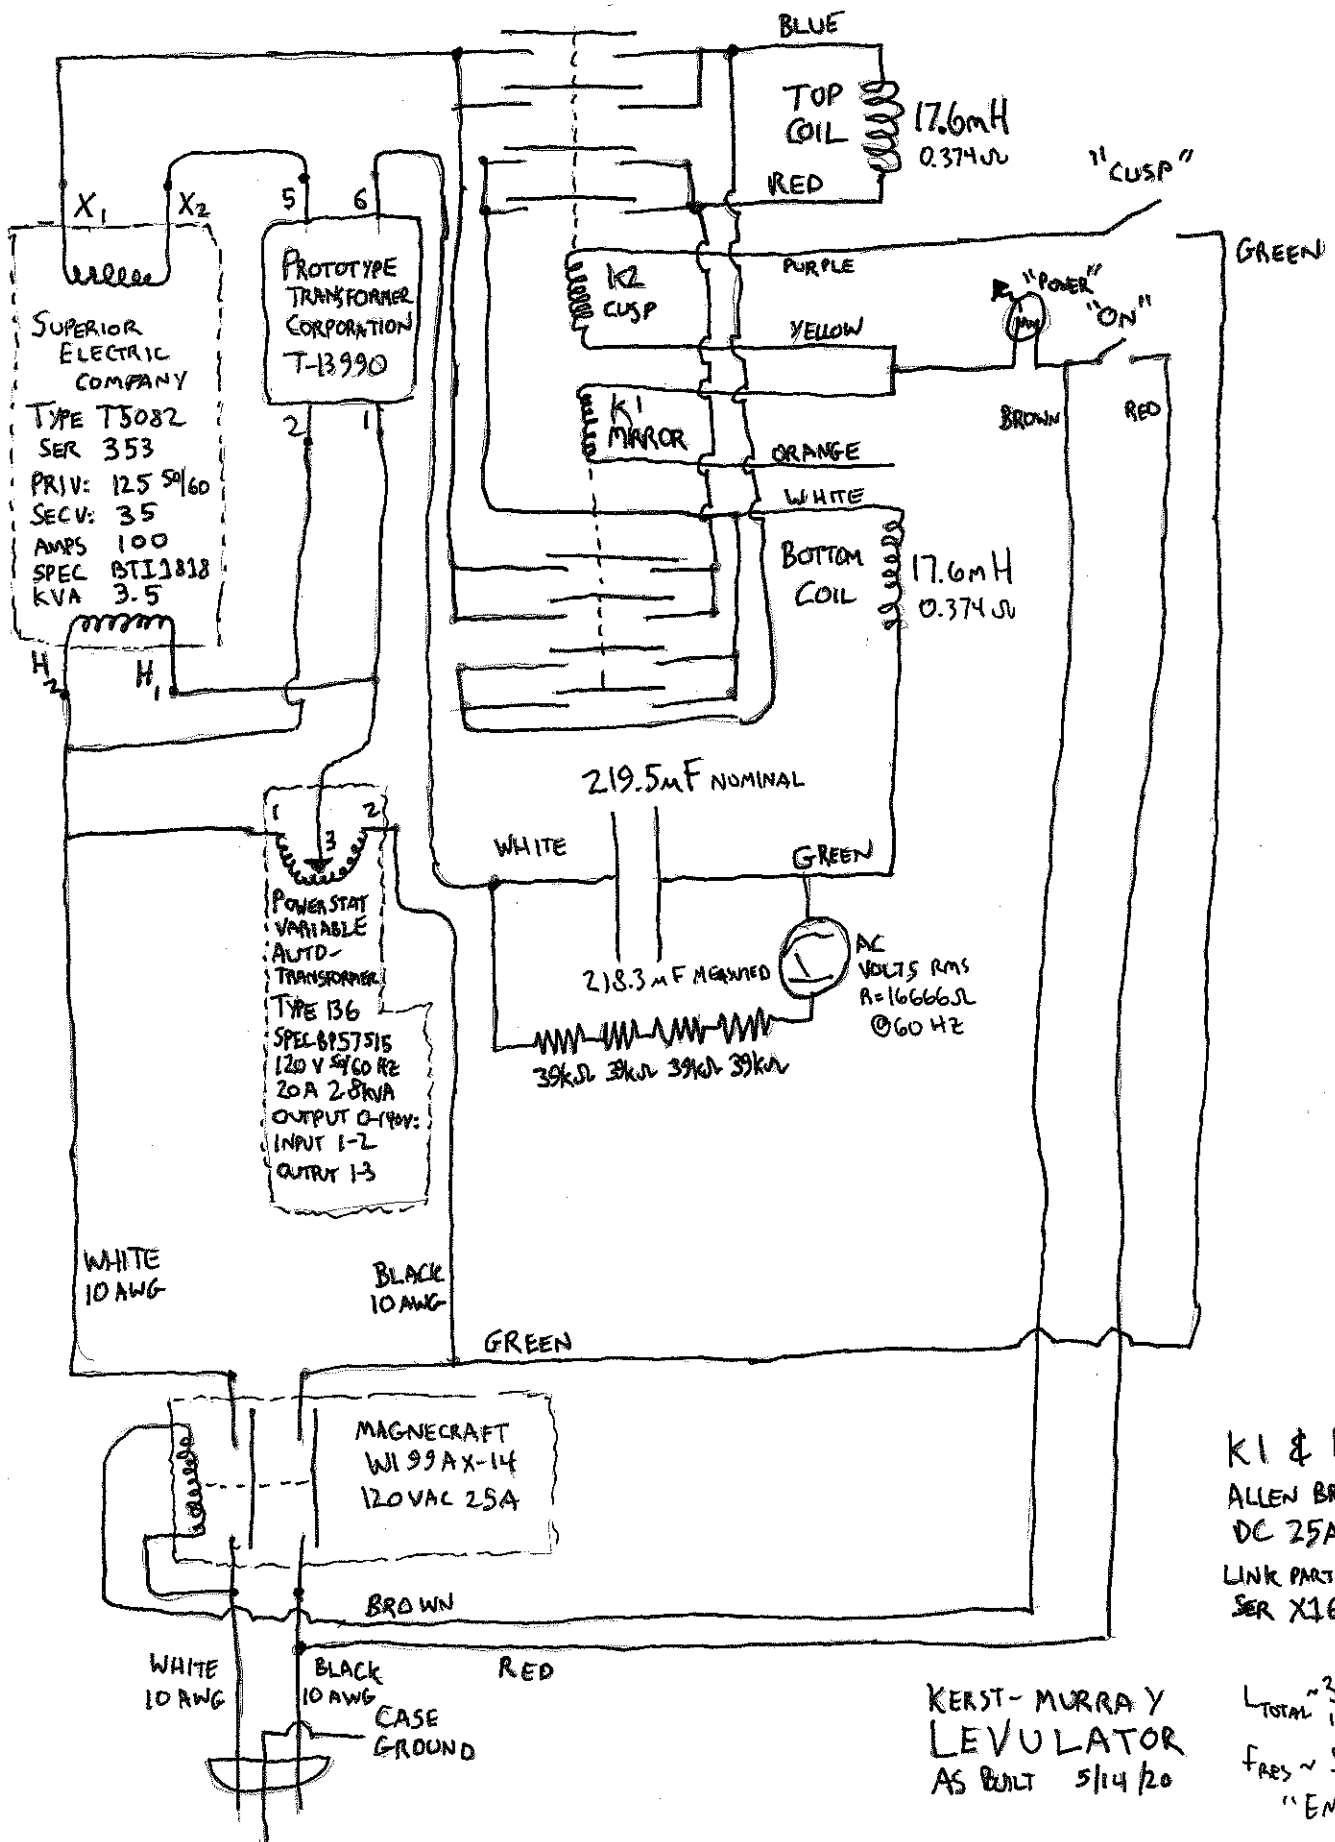 BLUE
TOP
COIL
17.6mH
0.374Ω
RED
"CUSP"
GREEN
X1
X2
5
6
PROTOTYPE
TRANSFORMER
CORPORATION
T-13990
2
1
SUPERIOR
ELECTRIC
COMPANY
TYPE T5082
SER 353
PRIV: 125 50/60
SECV: 35
AMPS 100
SPEC BTI1818
KVA 3.5
H2
H1
K2
CUSP
PURPLE
YELLOW
"POWER"
"ON"
BROWN
RED
K1
MIRROR
ORANGE
WHITE
BOTTOM
COIL
17.6mH
0.374Ω
219.5μF NOMINAL
WHITE
GREEN
218.3μF MEASURED
AC
VOLTS RMS
R=16666Ω
@60 HZ
39kΩ 39kΩ 39kΩ 39kΩ
1
2
3
POWERSTAT
VARIABLE
AUTO-
TRANSFORMER
TYPE 136
SPEC BP57515
120 V 50/60 HZ
20A 2.8KVA
OUTPUT 0-140V:
INPUT 1-2
OUTPUT 1-3
WHITE
10 AWG
BLACK
10 AWG
GREEN
MAGNECRAFT
W199AX-14
120VAC 25A
BROWN
RED
WHITE
10 AWG
BLACK
10 AWG
CASE
GROUND
K1 &
ALLEN BR
DC 25A
LINK PART
SER X16
KERST-MURRAY
LEVULATOR
AS BUILT 5/14/20
LTOTAL ~
fRES ~
"EN